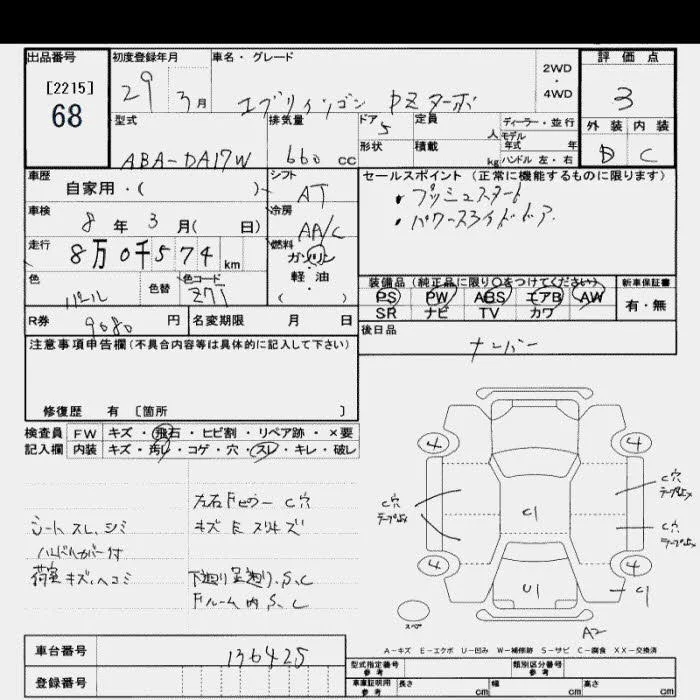 出品番号 初度登録年月 車名・グレード 2WD・4WD 評価点
[2215]
68
29 3月 エブリィワゴン PZターボ 3
型式 排気量 ドア 5 定員 人 ディーラー・並行 モデル 年式 年 外装 内装
ABA-DA17W 660 cc 形状 積載 kg ハンドル 左・右 D C
車歴 自家用・( ) シフト AT セールスポイント (正常に機能するものに限ります)
・プッシュスタート
・パワースライドドア
車検 8年 3月( 日) 冷房 AA/C
走行 8万0千574 km 燃料 ガソリン 軽・油 ( )
色 パール 色替 色コード Z7T
装備品 (純正品に限り○をつけてください) 新車保証書
PS PW ABS エアB AW 有・無
SR ナビ TV カワ
R券 9680 円 名変期限 月 日 後日品 ナンバー
注意事項申告欄(不具合内容等は具体的に記入して下さい)
修復歴 有 〔箇所 〕
検査員 FW キズ・飛石・ヒビ割・リペア跡・×要
記入欄 内装 キズ・汚レ・コゲ・穴・スレ・キレ・破レ
左右Fピラー C穴
シートスレ、シミ キズ E スリキズ
ハンドルカバー付
荷室キズ、ヘコミ 下廻り足廻りS、C
Fルーム内S、C
4 4
C穴 C穴
C1
C穴
4 4
U1 C1
スペア A2
A-キズ E-エクボ U-凹み W-補修跡 S-サビ C-腐食 XX-交換済
車台番号 136425 型式指定番号 参考 類別区分番号 参考
登録番号 車庫証明用 参考 長さ cm 幅 cm 高さ cm